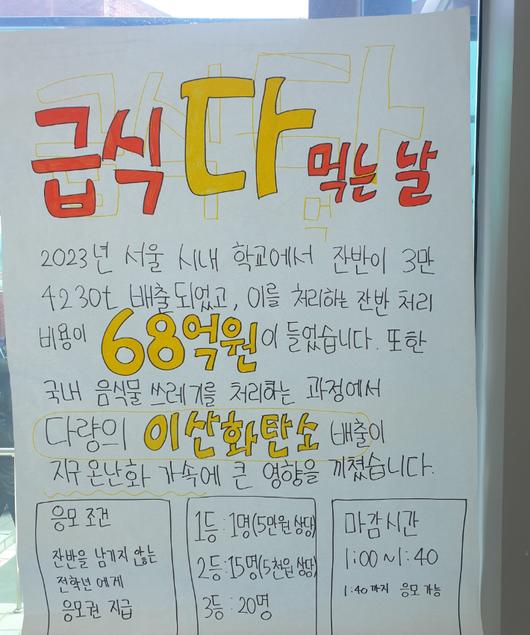 급식 다 먹는 날
2023년 서울 시내 학교에서 잔반이 3만
4230t 배출되었고, 이를 처리하는 잔반 처리
비용이 68억원이 들었습니다. 또한
국내 음식물 쓰레기를 처리하는 과정에서
다량의 이산화탄소 배출이
지구 온난화 가속에 큰 영향을 끼쳤습니다.
응모 조건
잔반을 남기지 않는
전학년에게
응모권 지급
1등 : 1명(5만원 상당)
2등 : 15명(5천원 상당)
3등 : 20명
마감시간
1:00~1:40
1:40까지 응모 가능